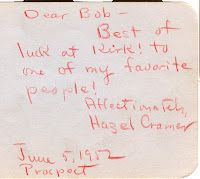 Dear Bob -
Best of
luck at Kirk! to
one of my favorite
people!
Affectionately,
Hazel Cramer
June 5, 1952
Prospect